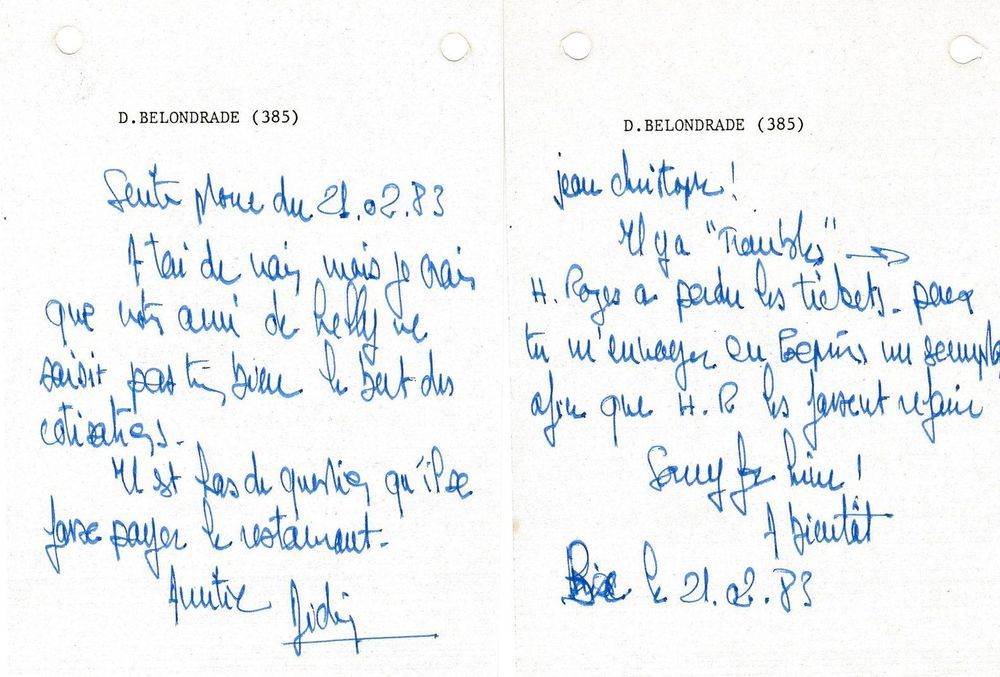 D.BELONDRADE (385)
du 21.02.83
A toi de voir, mais je crois
que votre ami de ne
saisit pas très bien le but des
cotisations.
Il est pas de question qu'il se
fasse payer le restaurant.
Amitié Didier
D.BELONDRADE (385)
jean christophe!
Il y a "Troubles" →
H. Rozes a perdu les tickets. peux
tu m'envoyer un
afin que H.R les fassent refaire
Sorry for him!
A bientôt
le 21.02.83